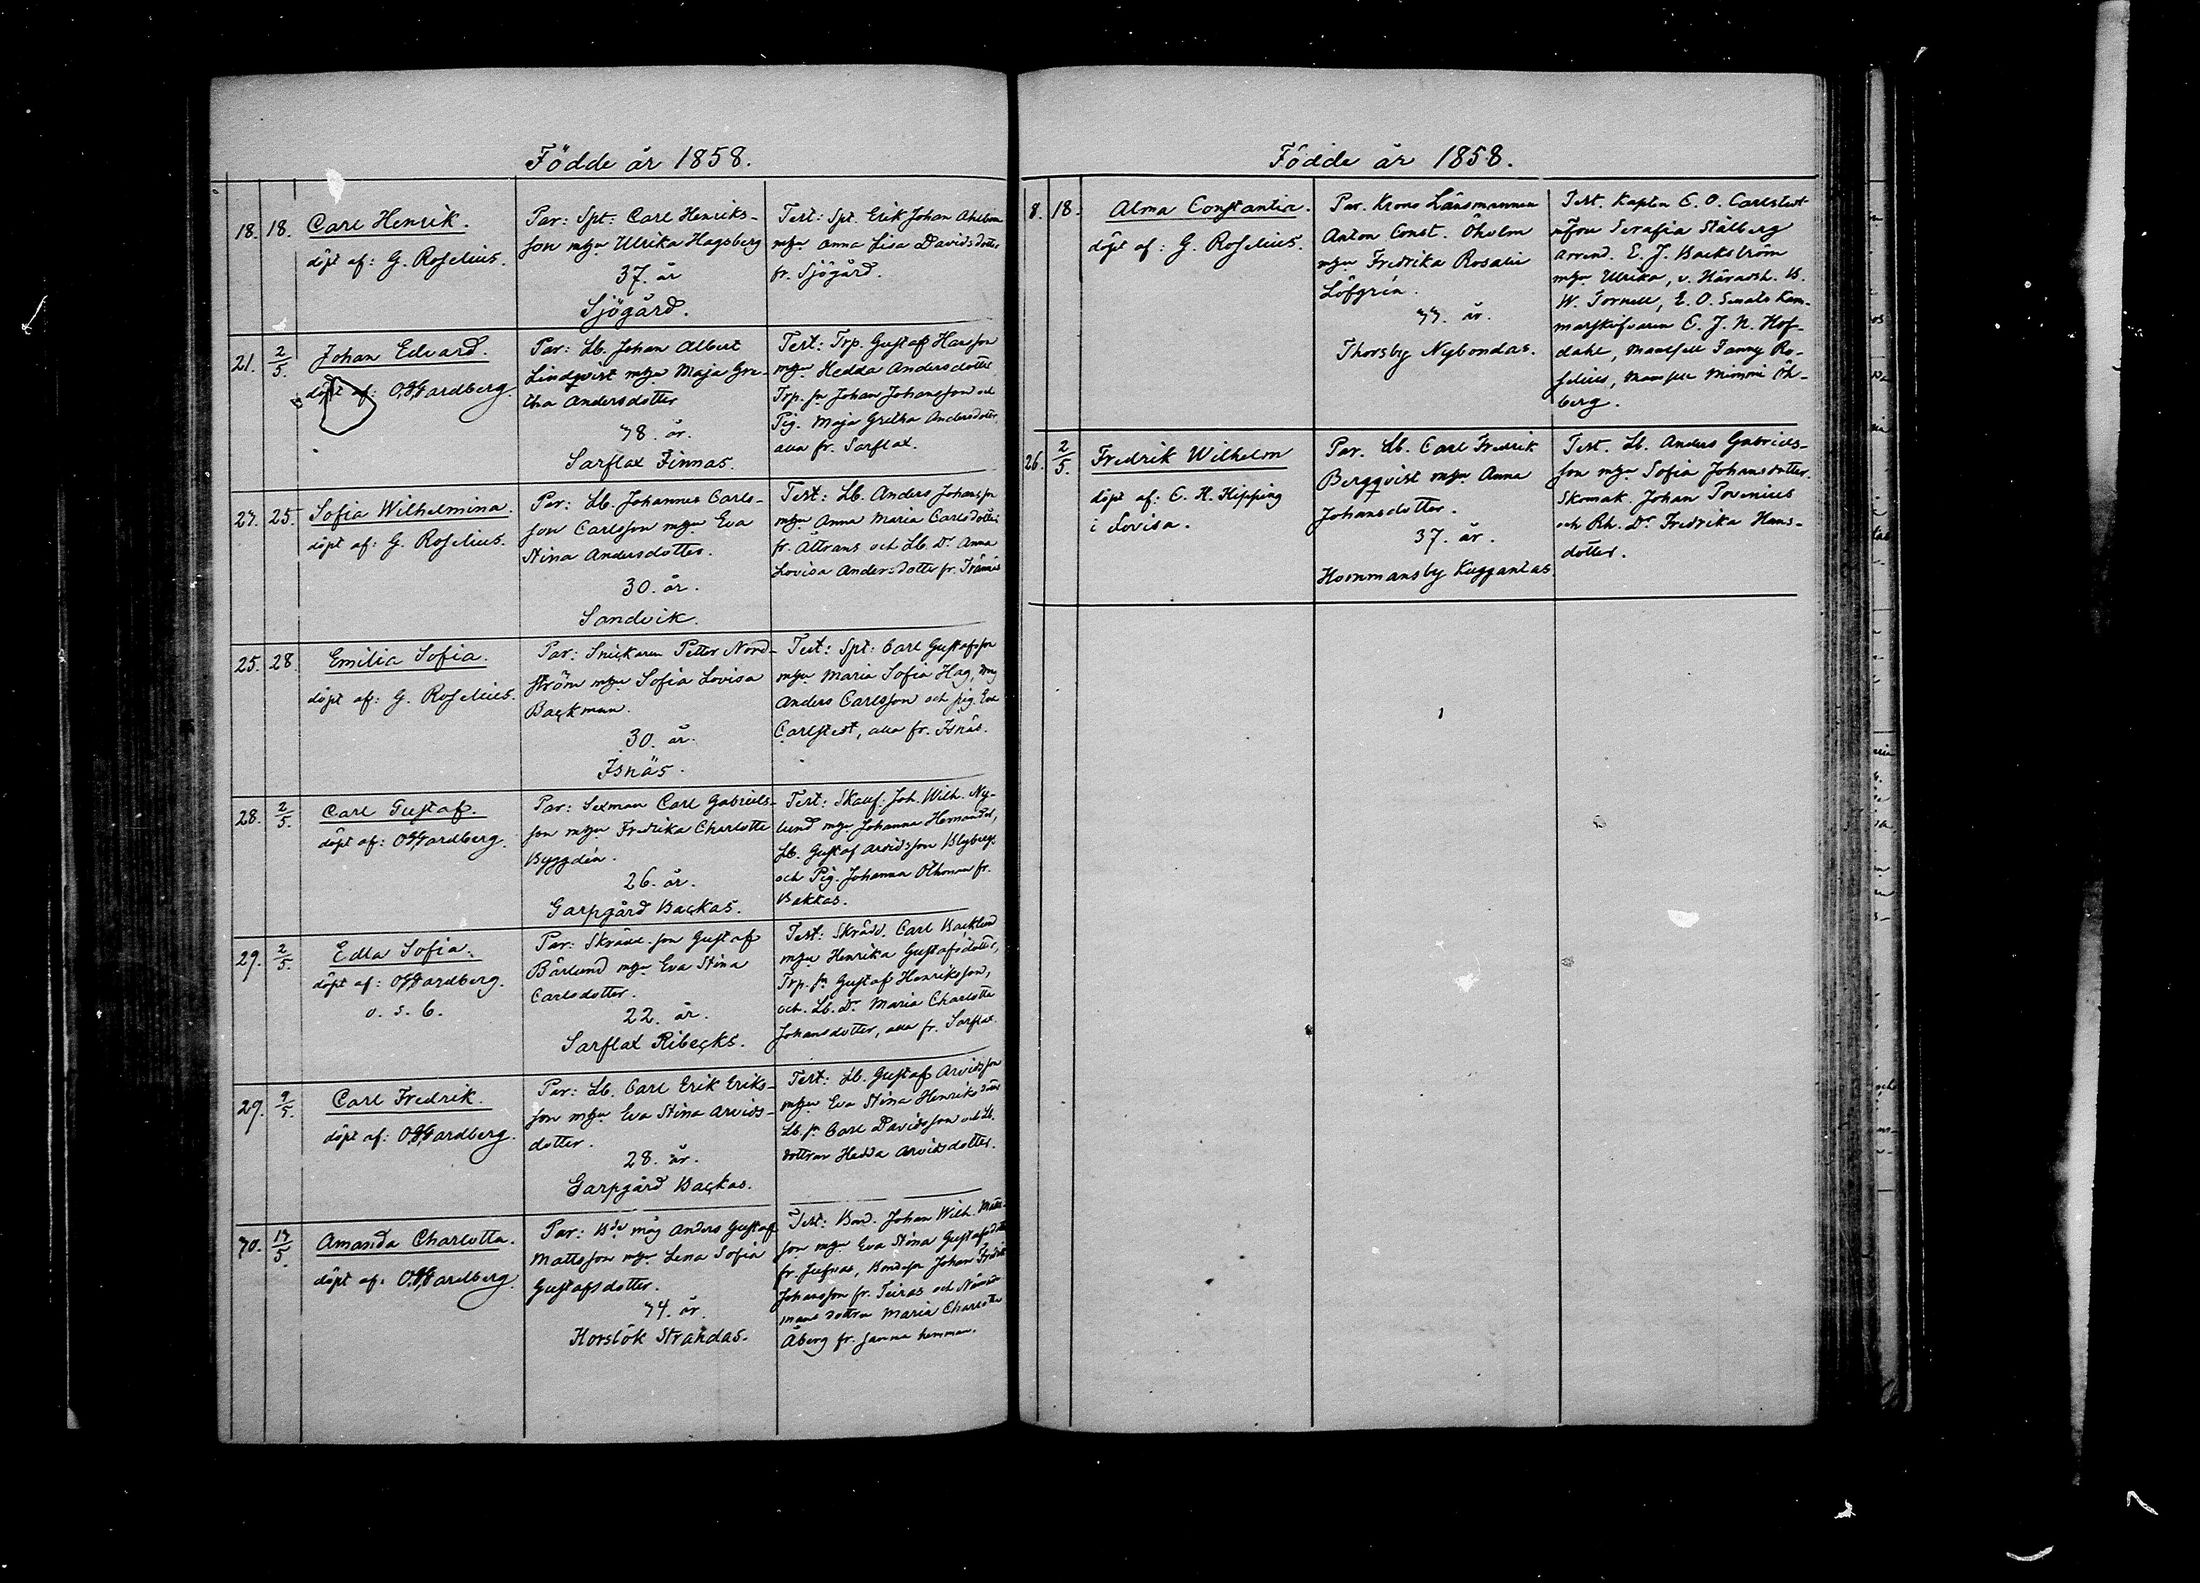 Födde år 1858.
18. 18. Carl Henrik.
döpt af: G. Roselius.
Par: Spt: Carl Henriks-
son m hu Ulrika Hagsberg
37. år
Sjögård.
Test: Spt. Erik Johan Ahlbom
m hu Anna Lisa Davidsdotter
fr. Sjögård.
21. 2/5. Johan Edvard.
döpt af: O. Gardberg.
Par: Lb. Johan Albert
Lindqvist m hu Maja Gre-
tha Andersdotter
38. år.
Sarflax Finnas.
Test: Trp. Gustaf Hansson
m hu Hedda Andersdotter
Trp. sn Johan Johansson och
Pig. Maja Gretha Andersdotter,
alla fr. Sarflax.
27. 25. Sofia Wilhelmina.
döpt af: G. Roselius.
Par: Lb. Johannes Carls-
son Carlsson m hu Eva
Stina Andersdotter.
30. år.
Sandvik.
Test: Lb. Anders Johansson
m hu Anna Maria Carlsdotter
fr. och Lb. Dr Anna
Lovisa Andersdotter fr.
25. 28. Emilia Sofia.
döpt af: G. Roselius.
Par: Snickaren Petter Nord-
ström m hu Sofia Lovisa
Backman.
30. år.
Isnäs.
Test: Spt: Carl Gustafsson
m hu Maria Sofia Hag, måg
Anders Carlsson och pig. Eva
Carlstedt, alla fr. Isnäs.
28. 2/5. Carl Gustaf.
döpt af: O. Gardberg.
Par: Sexman Carl Gabriels-
son m hu Fredrika Charlotte
Byggdén.
26. år.
Garpgård Backas.
Test: Skauf. Joh. Wilh. Ny-
lund m hu Johanna
Lb. Gustaf Arvidsson Blyberg
och Pig. Johanna fr.
Bakkas.
29. 2/5. Edla Sofia.
döpt af: O. Gardberg.
o. s. 6.
Par: Skrädd. son Gustaf
Bärlund m hu Eva Stina
Carlsdotter.
22. år.
Sarflax Ribecks.
Test: Skrädd. Carl Backlund
m hu Henrika Gustafsdotter,
Trp. sn Gustaf Henriksson,
och. Lb. Dr Maria Charlotta
Johansdotter, alla fr. Sarflax.
29. 9/5. Carl Fredrik.
döpt af: O. Gardberg.
Par: Lb. Carl Erik Eriks-
son m hu Eva Stina Arvids-
dotter.
28. år.
Garpgård Backas.
Test: Lb. Gustaf Arvidsson
m hu Eva Stina Henriksdotter
Lb. sn Carl Davidsson och Lb.
dottren Hedda Arvidsdotter.
30. 13/5. Amanda Charlotta.
döpt af: O. Gardberg.
Par: Bde måg Anders Gustaf
Mattsson m hu Lena Sofia
Gustafsdotter.
34. år.
Horslök Strandas.
Test: Bond. Johan Wilh. Matts-
son m hu Eva Stina Gustafsdotter
fr. Bondesn Johan Fredrik
Johansson fr. Teiras och Nämnde-
mans dottren Maria Charlotta
Åberg fr. samma hemman.
Födde år 1858.
8. 18. Alma Constantia.
döpt af: G. Roselius.
Par. Krono Länsmannen
Anton Const. Öholm
m hu Fredrika Rosalie
Löfgrén.
33. år.
Thorsby Nybondas.
Test. Kapten C. O. Carlstedt
m fru Serafia Stålberg
Arrend. E. J. Backström
m hu Ulrika, v. Häradsh. B.
W. Tornell, E. O. Senats Kam-
marskrifvaren C. J. N. Hof-
dahl, Mamsell Fanny Ro-
selius, Mamsell Mimmi Öh-
berg.
26. 2/5. Fredrik Wilhelm
döpt af: C. H. Hipping
i Lovisa.
Par. Lb. Carl Fredrik
Bergqvist m hu Anna
Johansdotter.
37. år.
Hommansby Kuggantas.
Test. Lb. Anders Gabriels-
son m hu Sofia Johansdotter.
Skomak. Johan Povenius
och Rh. Dr Fredrika Hans-
dotter.